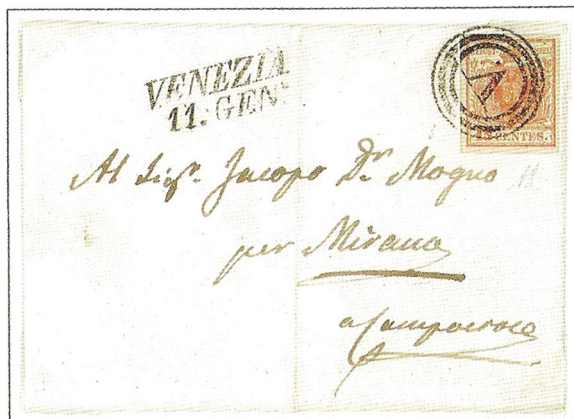 VENEZIA
11. GEN.
15 CENTES.
Al Sigr. Jacopo Dr. Mogno
per Mirano
a Campocroce